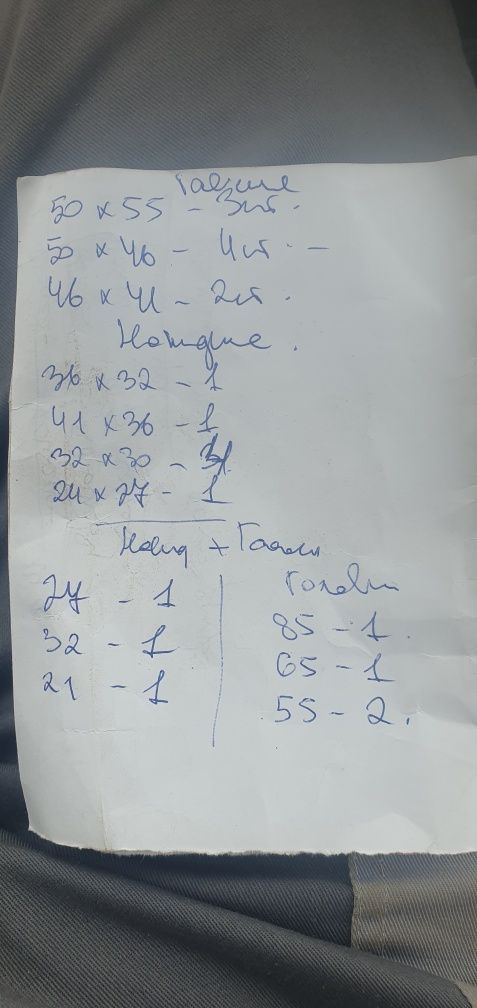 50 х 55 - 3шт.
50 х 46 - 4шт. -
46 х 41 - 2шт.
Накидные.
36 х 32 - 1
41 х 36 - 1
32 х 30 -
24 х 27 - 1
Накид +
27 - 1
32 - 1
21 - 1
Головки
85 - 1.
65 - 1
55 - 2.